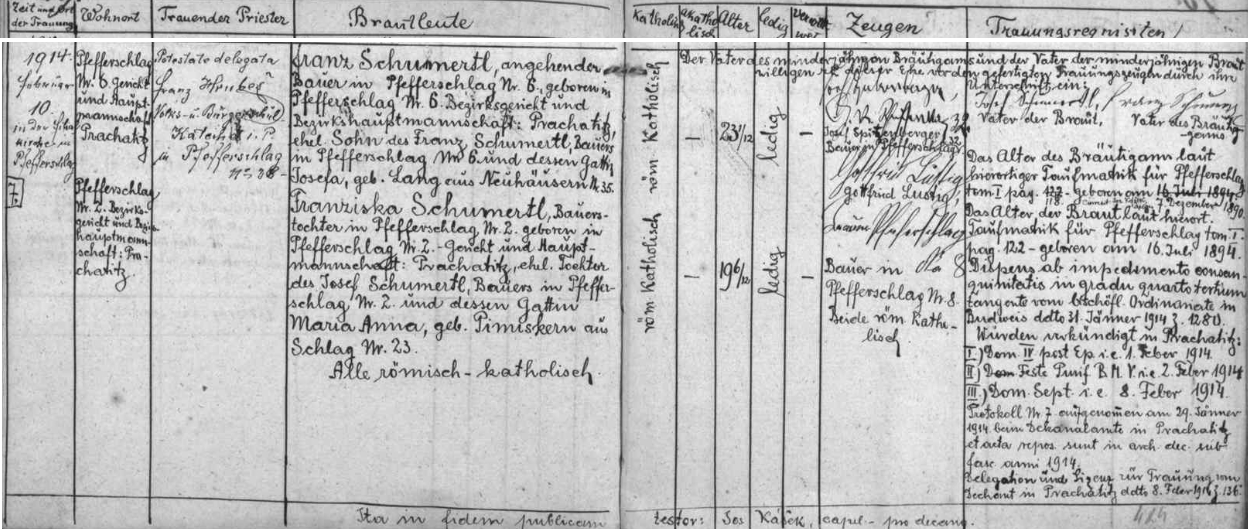 Zeit und Ort
der Trauung
Wohnort
Trauender Priester
Brautleute
Katholisch
akatholisch
Alter
ledig
verwitwet
Zeugen
Trauungsrequisiten
1914.
Februar
10.
in der
Pfefferschlag
7.
Pfefferschlag
Nr. 6. Gericht
und Haupt-
mannschaft
Prachatitz
Pfefferschlag,
Nr. 2. Bezirks-
gericht und Bezirks-
hauptmann-
schaft: Pra-
chatitz
Potestate delegata
Franz
Volks- u. Bürgerschul
Katechet i. P.
in Pfefferschlag
No 38 -
Franz Schumertl, angehender
Bauer in Pfefferschlag Nr. 6., geboren in
Pfefferschlag Nr. 6. Bezirksgericht und
Bezirkshauptmannschaft: Prachatitz,
ehel. Sohn des Franz Schumertl, Bauers
in Pfefferschlag Nr 6. und dessen Gattin
Josefa, geb. Lang aus Neuhäusern N. 35.
Franziska Schumertl, Bauers-
tochter in Pfefferschlag, Nr. 2. geboren in
Pfefferschlag Nr. 2. - Gericht und Haupt-
mannschaft: Prachatitz, ehel. Tochter
des Josef Schumertl, Bauers in Pfeffer-
schlag, Nr. 2. und dessen Gattin
Maria Anna, geb. Pimiskern aus
Schlag Nr. 23.
Alle römisch-katholisch.
röm Katholisch
röm Katholisch
–
23 1/12
ledig
–
–
19 6/12
ledig
–
Josef Spitzenberger
Bauer in Pfefferschlag
Gottfried Lustig
Gottfried Lustig,
Bauer in No 8
Pfefferschlag Nr. 8.
Beide röm. Katho-
lisch
Der Vater des minderjährigen Bräutigams und der Vater der minderjährigen Braut
willigen in dieser Ehe vor den gefertigten Trauungszeugen durch ihre
Unterschrift ein:
Josef Schumertl, Franz Schumertl
Vater der Braut, Vater des Bräuti-
gams
Das Alter des Bräutigams laut
hierortiger Taufmatrik für Pfefferschlag
tom I. pag. 122 - geboren am 16. Juli 1894,
118. 7. Dezember 1890.
Das Alter der Braut laut hierort.
Taufmatrik für Pfefferschlag tom. I. -
pag. 122 - geboren am 16. Juli 1894.
Dispens ab impedimento consan-
guinitatis in gradu quarto tertium
tangente vom bischöfl. Ordinariate in
Budweis ddto 31. Jänner 1914 z. 1280.
Wurden verkündigt in Prachatitz:
I.) Dom. IV post Ep. i. e. 1. Feber 1914.
II.) Dom Feste Purif B. M. V. i. e 2. Feber 1914
III.) Dom. Sept. i. e. 8. Feber 1914.
Protokoll Nr 7 aufgenomen am 29. Jänner
1914. beim Dekanalamte in Prachatitz
et acta repos. sunt in arch. dec. sub
fasc anni 1914.
Delegation und Lizenz zur Trauung vom
Dechant in Prachatitz ddto 8. Feber 1914 z. 136.
Ita in fidem publicam
testor: Jos Kašek, capel. - pro decano.